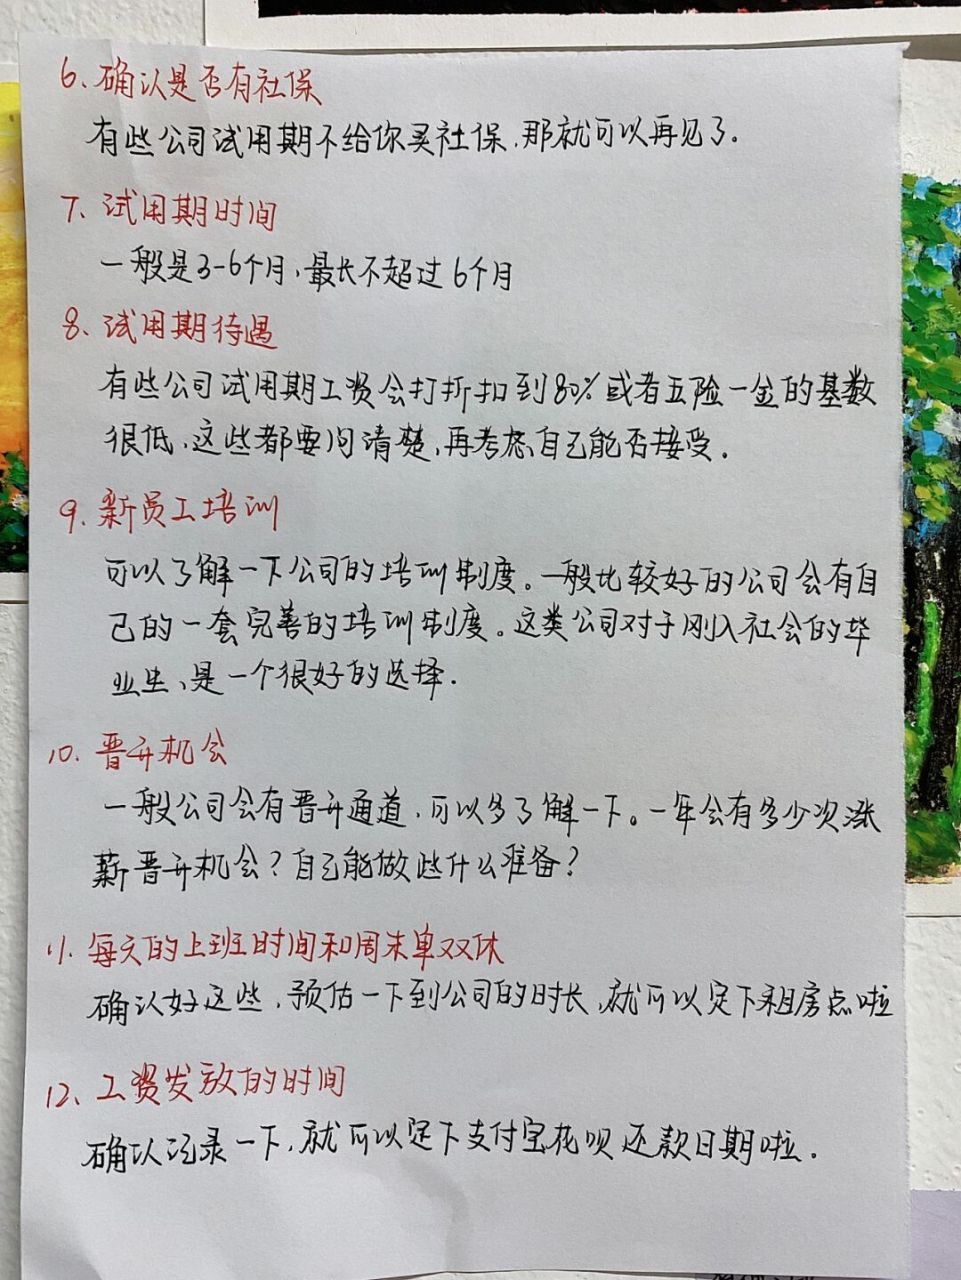 6、确认是否有社保
有些公司试用期不给你买社保,那就可以再见了.
7、试用期时间
一般是3-6个月、最长不超过6个月
8、试用期待遇
有些公司试用期工资会打折扣到80%或者五险一金的基数
很低、这些都要问清楚、再考虑自己能否接受.
9、新员工培训
可以了解一下公司的培训制度。一般比较好的公司会有自
己的一套完善的培训制度。这类公司对于刚入社会的毕
业生、是一个很好的选择.
10、晋升机会
一般公司会有晋升通道,可以多了解一下。一年会有多少次涨
薪晋升机会?自己能做些什么准备?
11、每天的上班时间和周末单双休
确认好这些,预估一下到公司的时长,就可以定下租房点啦
12、工资发放的时间
确认记录一下,就可以定下支付宝花呗还款日期啦.